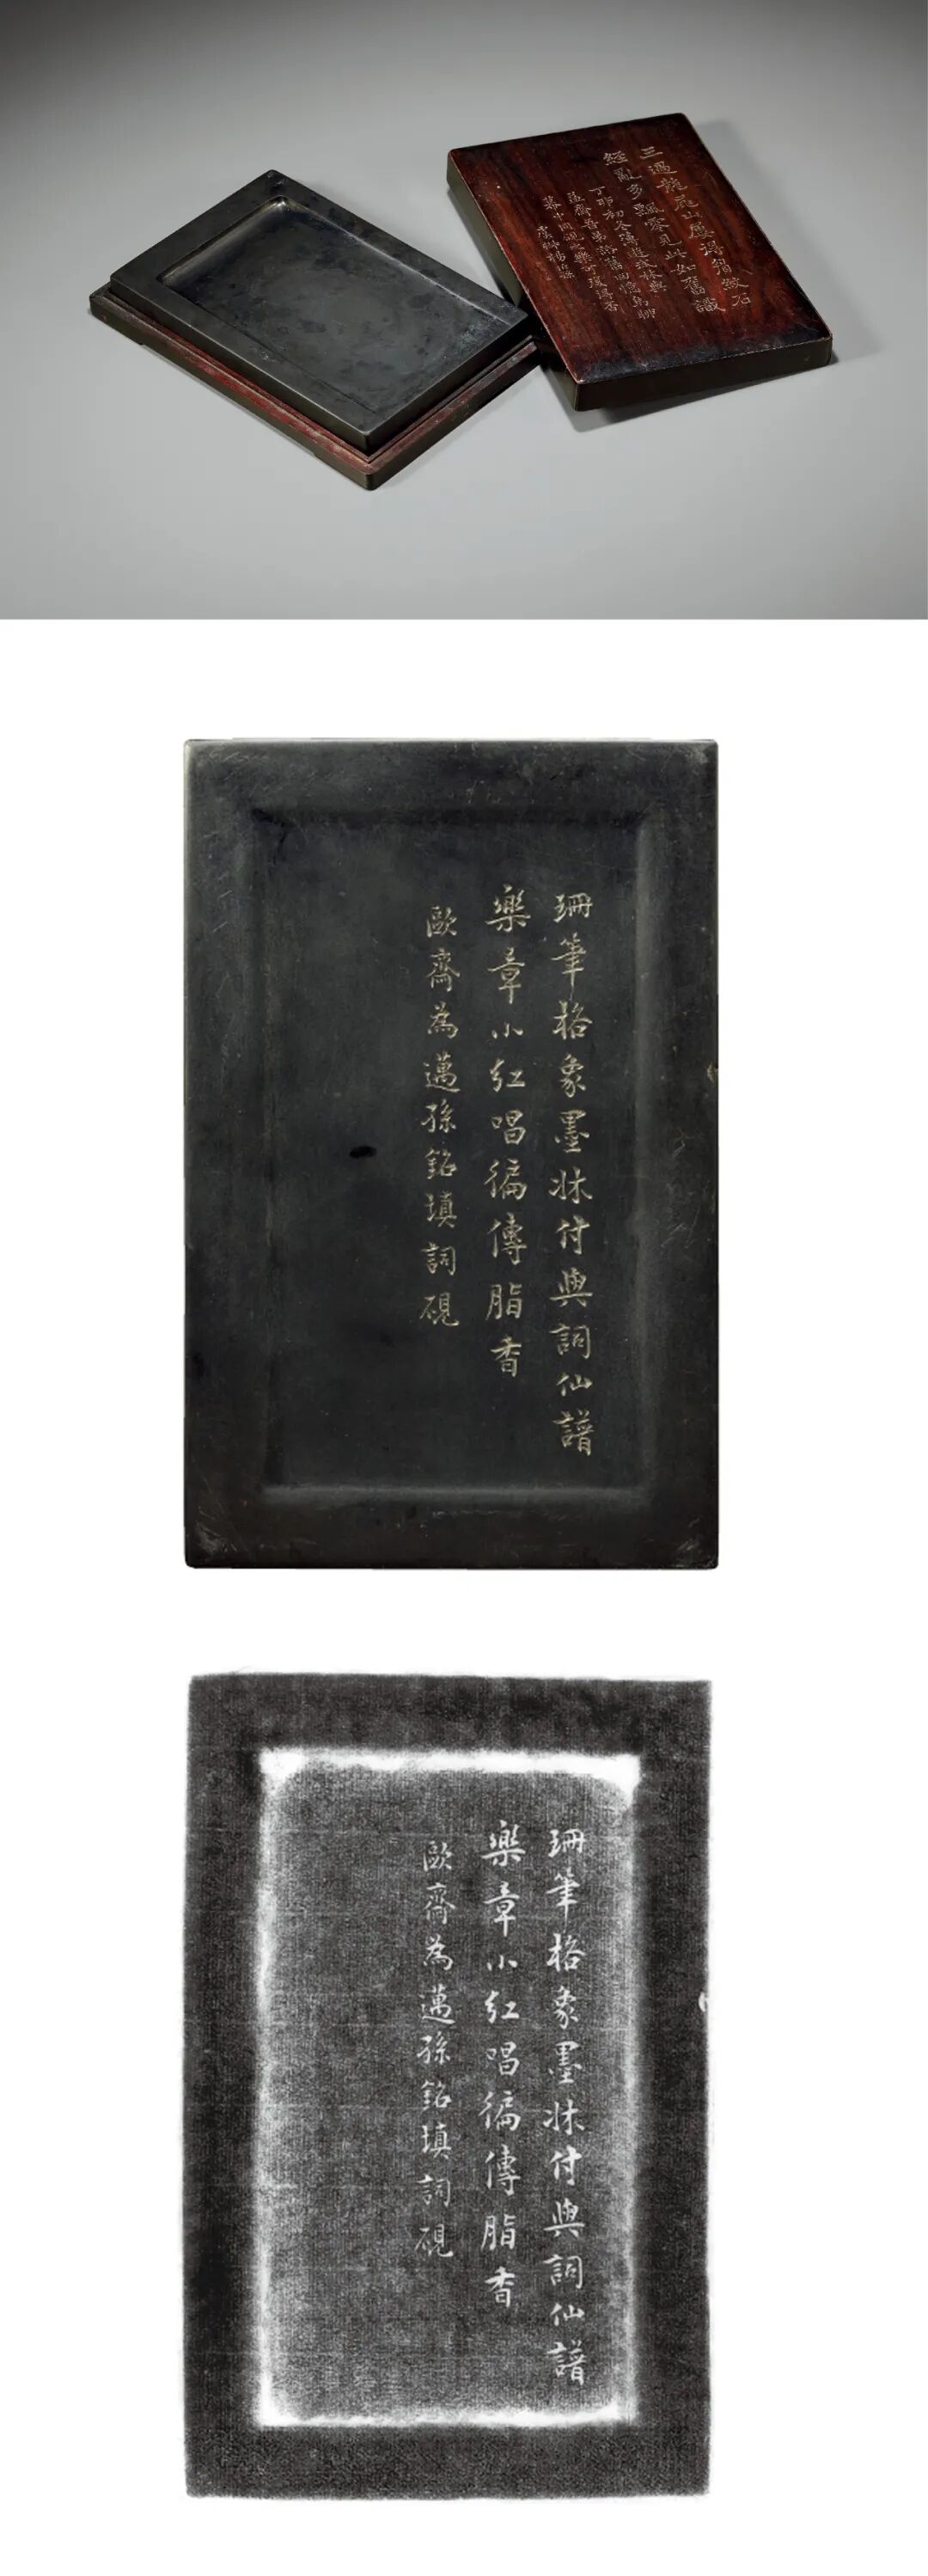 三過龍尾山屢得紋石
經亂多飄零見此如舊識
丁卯初冬
齋吾弟話舊回憶
珊筆格象墨牀付與詞仙譜
樂章小紅唱徧傳脂香
歐齋為邁孫銘填詞硯
珊筆格象墨牀付與詞仙譜
樂章小紅唱徧傳脂香
歐齋為邁孫銘填詞硯